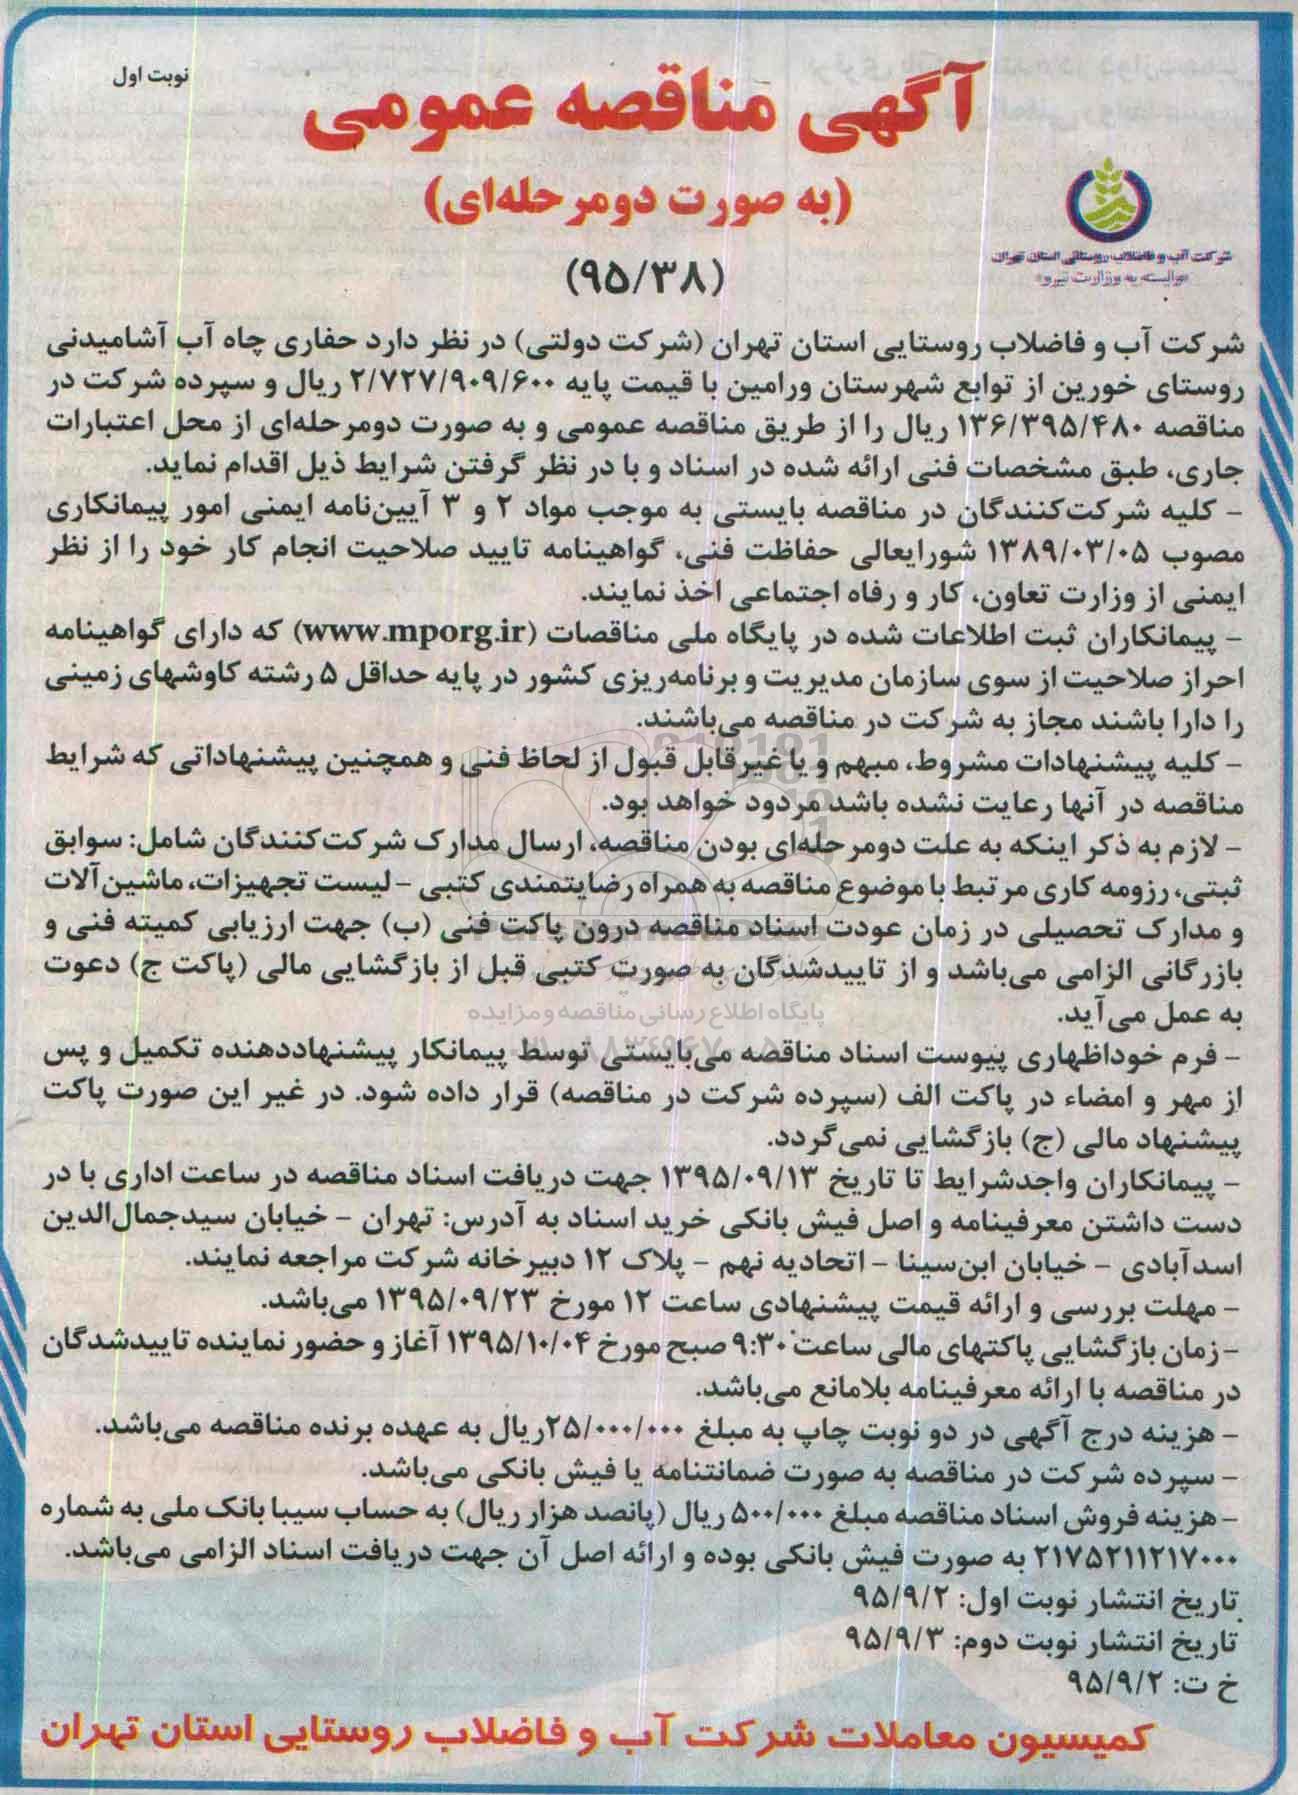 نوبت اول
آگهی مناقصه عمومی
(به صورت دومرحله‌ای)
(۹۵/۳۸)
شرکت آب و فاضلاب روستایی استان تهران
«وابسته به وزارت نیرو»
شرکت آب و فاضلاب روستایی استان تهران (شرکت دولتی) در نظر دارد حفاری چاه آب آشامیدنی
روستای خورین از توابع شهرستان ورامین با قیمت پایه ۲/۷۲۷/۹۰۹/۶۰۰ ریال و سپرده شرکت در
مناقصه ۱۳۶/۳۹۵/۴۸۰ ریال را از طریق مناقصه عمومی و به صورت دومرحله‌ای از محل اعتبارات
جاری، طبق مشخصات فنی ارائه شده در اسناد و با در نظر گرفتن شرایط ذیل اقدام نماید.
- کلیه شرکت‌کنندگان در مناقصه بایستی به موجب مواد ۲ و ۳ آیین‌نامه ایمنی امور پیمانکاری
مصوب ۱۳۸۹/۰۳/۰۵ شورایعالی حفاظت فنی، گواهینامه تایید صلاحیت انجام کار خود را از نظر
ایمنی از وزارت تعاون، کار و رفاه اجتماعی اخذ نمایند.
- پیمانکاران ثبت اطلاعات شده در پایگاه ملی مناقصات (www.mporg.ir) که دارای گواهینامه
احراز صلاحیت از سوی سازمان مدیریت و برنامه‌ریزی کشور در پایه حداقل ۵ رشته کاوشهای زمینی
را دارا باشند مجاز به شرکت در مناقصه می‌باشند.
- کلیه پیشنهادات مشروط، مبهم و یا غیرقابل قبول از لحاظ فنی و همچنین پیشنهاداتی که شرایط
مناقصه در آنها رعایت نشده باشد مردود خواهد بود.
- لازم به ذکر اینکه به علت دومرحله‌ای بودن مناقصه، ارسال مدارک شرکت‌کنندگان شامل: سوابق
ثبتی، رزومه کاری مرتبط با موضوع مناقصه به همراه رضایتمندی کتبی - لیست تجهیزات، ماشین‌آلات
و مدارک تحصیلی در زمان عودت اسناد مناقصه درون پاکت فنی (ب) جهت ارزیابی کمیته فنی و
بازرگانی الزامی می‌باشد و از تاییدشدگان به صورت کتبی قبل از بازگشایی مالی (پاکت ج) دعوت
به عمل می‌آید.
پایگاه اطلاع رسانی مناقصه و مزایده
- فرم خوداظهاری پیوست اسناد مناقصه می‌بایستی توسط پیمانکار پیشنهاددهنده تکمیل و پس
از مهر و امضاء در پاکت الف (سپرده شرکت در مناقصه) قرار داده شود. در غیر این صورت پاکت
پیشنهاد مالی (ج) بازگشایی نمی‌گردد.
- پیمانکاران واجدشرایط تا تاریخ ۱۳۹۵/۰۹/۱۳ جهت دریافت اسناد مناقصه در ساعت اداری با در
دست داشتن معرفینامه و اصل فیش بانکی خرید اسناد به آدرس: تهران - خیابان سیدجمال‌الدین
اسدآبادی - خیابان ابن‌سینا - اتحادیه نهم - پلاک ۱۲ دبیرخانه شرکت مراجعه نمایند.
- مهلت بررسی و ارائه قیمت پیشنهادی ساعت ۱۲ مورخ ۱۳۹۵/۰۹/۲۳ می‌باشد.
- زمان بازگشایی پاکتهای مالی ساعت ۹:۳۰ صبح مورخ ۱۳۹۵/۱۰/۰۴ آغاز و حضور نماینده تاییدشدگان
در مناقصه با ارائه معرفینامه بلامانع می‌باشد.
- هزینه درج آگهی در دو نوبت چاپ به مبلغ ۲۵/۰۰۰/۰۰۰ریال به عهده برنده مناقصه می‌باشد.
- سپرده شرکت در مناقصه به صورت ضمانتنامه یا فیش بانکی می‌باشد.
- هزینه فروش اسناد مناقصه مبلغ ۵۰۰/۰۰۰ ریال (پانصد هزار ریال) به حساب سیبا بانک ملی به شماره
۲۱۷۵۲۱۱۲۱۷۰۰۰ به صورت فیش بانکی بوده و ارائه اصل آن جهت دریافت اسناد الزامی می‌باشد.
تاریخ انتشار نوبت اول: ۹۵/۹/۲
تاریخ انتشار نوبت دوم: ۹۵/۹/۳
خ ت: ۹۵/۹/۲
کمیسیون معاملات شرکت آب و فاضلاب روستایی استان تهران